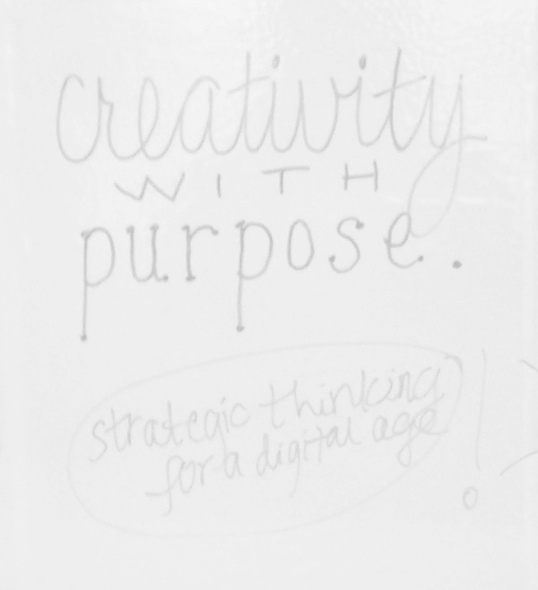 creativity
WITH
purpose.
strategic thinking
for a digital age!